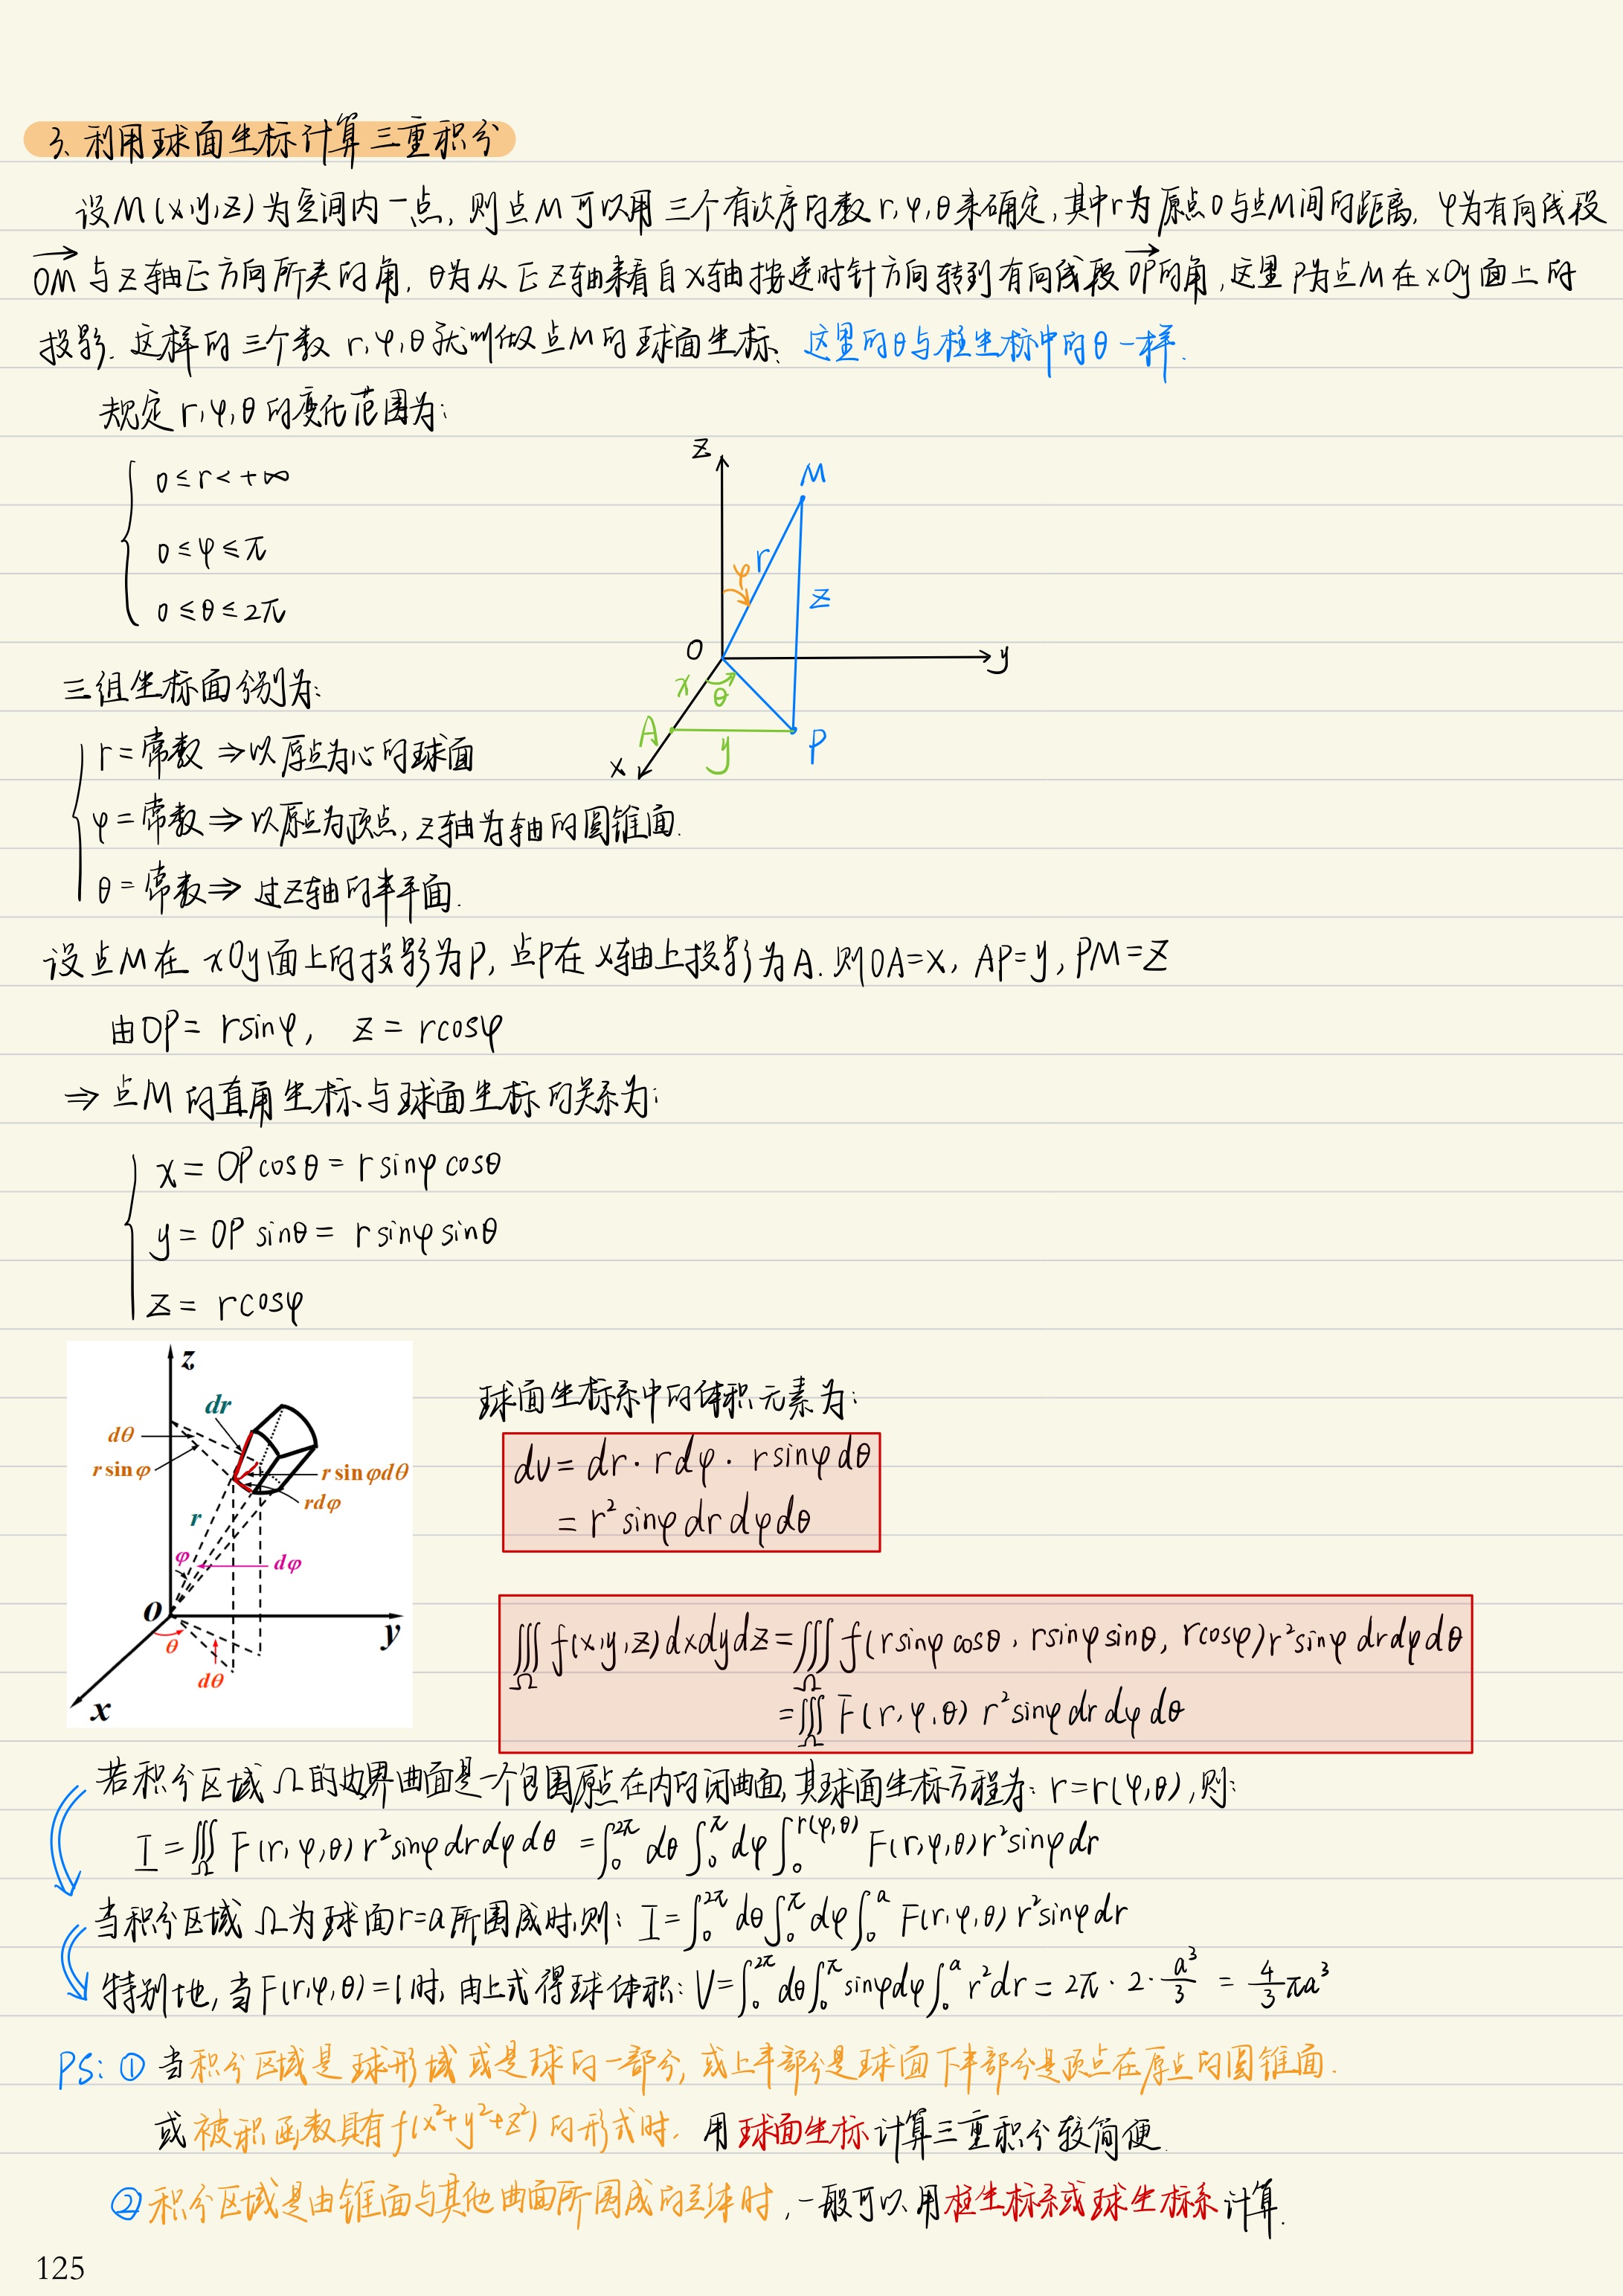 3、利用球面坐标计算三重积分
设M(x,y,z)为空间内一点, 则点M可以用三个有次序的数r,φ,θ来确定,其中r为原点O与点M间的距离, φ为有向线段
OM与z轴正方向所夹的角, θ为从正z轴来看自x轴按逆时针方向转到有向线段OP的角,这里P为点M在xOy面上的
投影. 这样的三个数r,φ,θ就叫做点M的球面坐标. 这里的θ与柱坐标中的θ一样.
规定r,φ,θ的变化范围为:
0≤r<+∞
0≤φ≤π
0≤θ≤2π
z
M
r
φ
z
O
y
x
θ
A
y
P
x
三组坐标面分别为:
r=常数 ⇒以原点为心的球面
φ=常数⇒以原点为顶点,z轴为轴的圆锥面.
θ=常数⇒ 过z轴的半平面.
设点M在xOy面上的投影为P, 点P在x轴上投影为A. 则OA=x, AP=y, PM=z
由OP= rsinφ, z= rcosφ
⇒点M的直角坐标与球面坐标的关系为:
x= OPcosθ= rsinφcosθ
y= OP sinθ= rsinφsinθ
z= rcosφ
z
dr
dθ
r sin φ
r sin φdθ
rdφ
r
φ
dφ
O
y
θ
dθ
x
球面坐标系中的体积元素为:
dv= dr· rdφ· rsinφdθ
= r²sinφdrdφdθ
∭Ω f(x,y,z)dxdydz=∭Ω f(rsinφcosθ, rsinφsinθ, rcosφ)r²sinφdrdφdθ
=∭Ω F(r,φ,θ) r²sinφdrdφdθ
若积分区域Ω的边界曲面是一个包围原点在内的闭曲面,其球面坐标方程为: r=r(φ,θ),则:
I=∭Ω F(r,φ,θ) r²sinφdrdφdθ =∫₀^2π dθ∫₀^π dφ∫₀^r(φ,θ) F(r,φ,θ)r²sinφdr
当积分区域Ω为球面r=a所围成时,则: I=∫₀^2π dθ∫₀^π dφ∫₀^a F(r,φ,θ) r²sinφdr
特别地,当F(r,φ,θ)=1时, 由上式得球体积: V=∫₀^2π dθ∫₀^π sinφdφ∫₀^a r²dr= 2π·2·a³/3 = 4/3 πa³
PS: ① 当积分区域是球形域或是球的一部分, 或上半部分是球面下半部分是顶点在原点的圆锥面.
或被积函数具有f(x²+y²+z²)的形式时, 用球面坐标计算三重积分较简便.
② 积分区域是由锥面与其他曲面所围成的立体时,一般可以用柱坐标系或球坐标系计算.
125